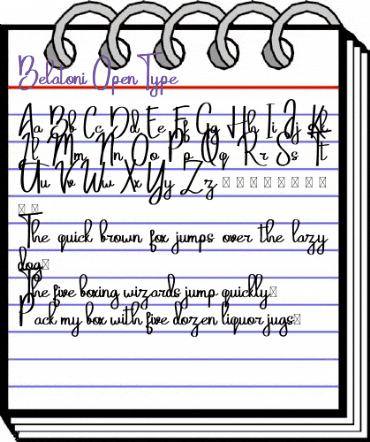 Belatoni Open Type
Aa Bb Cc Dd Ee Ff Gg Hh Ii Jj Kk
Ll Mm Nn Oo Pp Qq Rr Ss Tt
Uu Vv Ww Xx Yy Zz
The quick brown fox jumps over the lazy
dog
The five boxing wizards jump quickly
Pack my box with five dozen liquor jugs